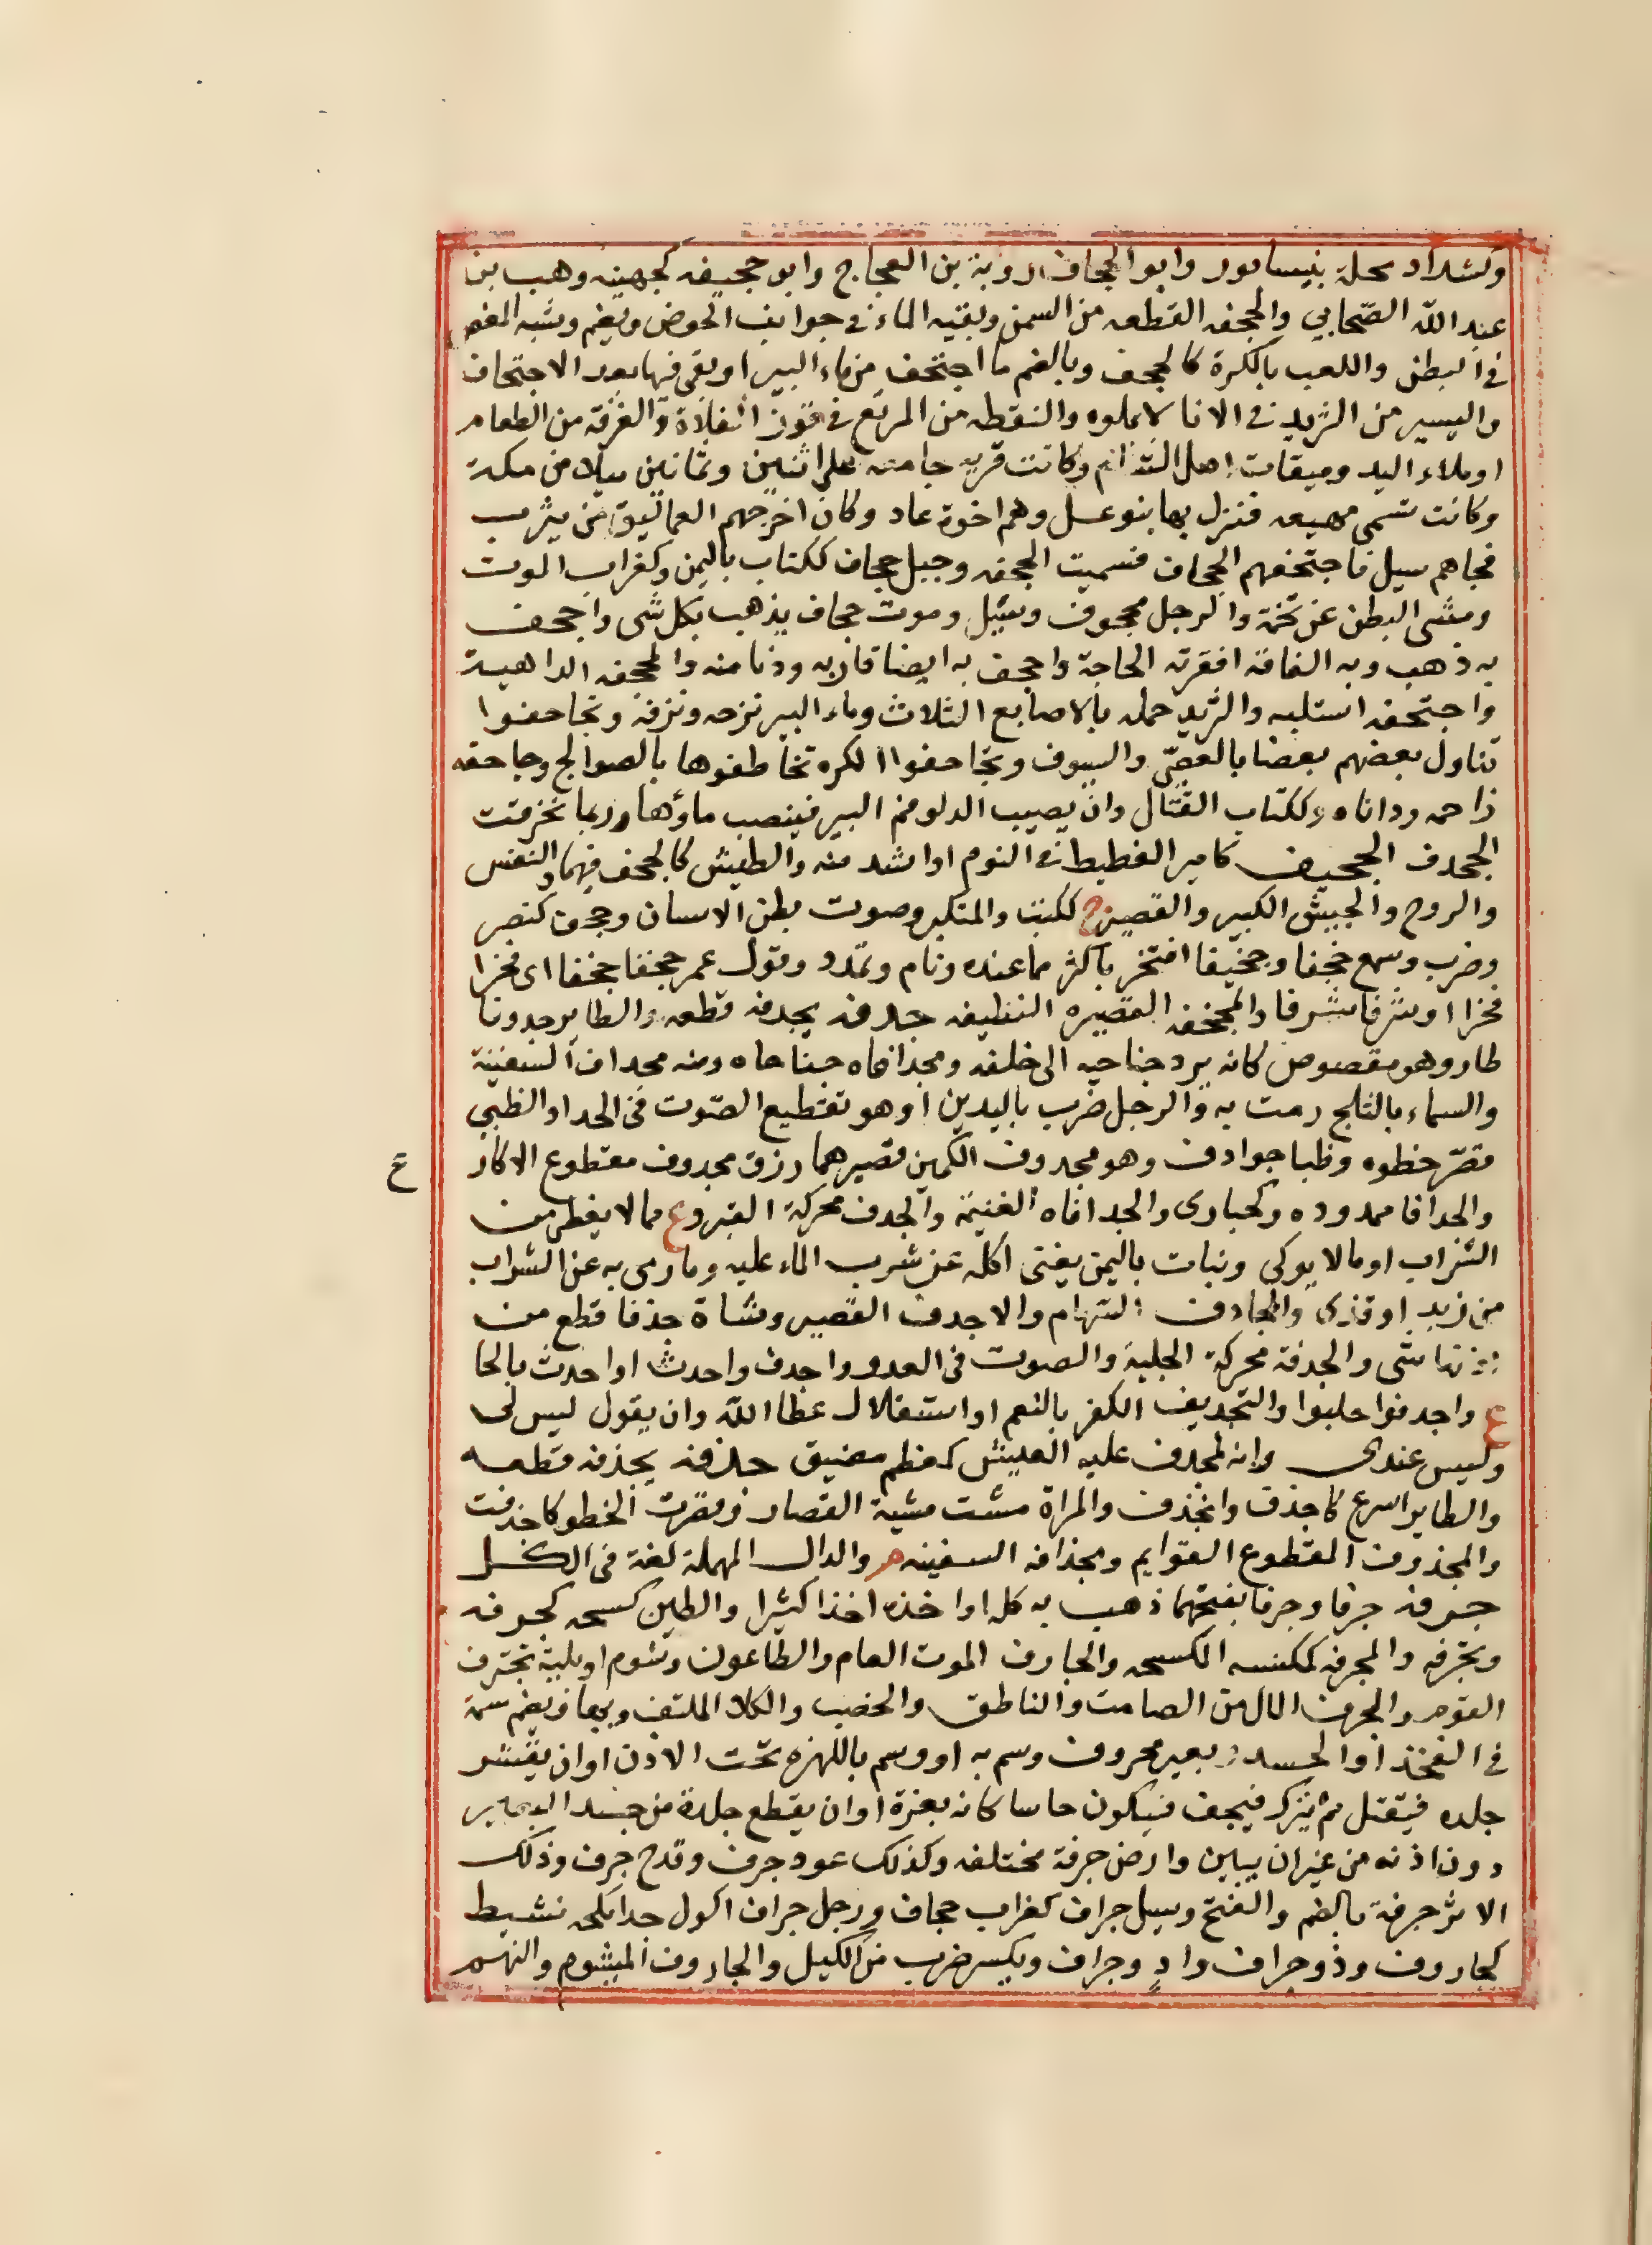 وكشداد محلة بنيسابور وابو الجحاف روبة بن العجاج وابو جحيفه كجهينه وهب بن
عبد الله الصّحابي والجحفه القطعه من السمن وبقيه الماء في جوانب الحوض ويضم وشبه المغص
في البطن واللعب بالكرة كالجحف وبالضم ما اجتحف من ماء البير او بقى فيها بعد الاجتحاف
واليسير من الثريد في الانا لا يملوه والنقطه من المرتع في قوز الفلاة والغرفة من الطعام
او ملاء اليد وميقات اهل الشام وكانت قريه جامعه على اثنين وثمانين ميلا من مكة
وكانت تسمى مهيعه فنزل بها بنو عسل وهم اخوة عاد وكان اخرجهم العماليق من يثرب
فجاهم سيل فاجتحفهم الجحاف فسميت الجحفه وجبل جحاف ككتاب باليمن وكغراب الموت
ومشى البطن عن تخمة والرجل مجحوف وسيل وموت جحاف يذهب بكل شى واجحف
به ذهب وبه الفاقة افقرته الحاجة واجحف به ايضا قاربه ودنا منه والمجحفه الداهية
واجتحفه استلبه والثريد حمله بالاصابع الثلاث وماء البير نزحه ونزفه وتجاحفوا
تناول بعضهم بعضا بالعصىّ والسيوف وتجاحفوا الكره تخاطفوها بالصوالج وجاحفه
زاحمه وداناه وككتاب القتال وان يصيب الدلو فم البير فينصب ماؤها وربما تخرقت
الجحدف الجحيف كامير الغطيط في النوم او اشد منه والطيش كالجحف فيهما والنفس
والروح والجيش الكبير والقصير ج ككتب والمتكبر وصوت بطن الانسان وجحف كنصر
وضرب وسمع جخفا وجخيفا افتخر باكثر مما عنده ونام وتمدد وقول عمر جخفا جخفا اى فخرا
فخرا او شرفا شرفا والجخفه القصيره القظيفه جدفه يجدفه قطعه والطاير جدوفا
طار وهو مقصوص كانه يرد جناحيه الى خلفه ومجدافاه جناحاه ومنه مجداف السفينة
والسماء بالثلج رمت به والرجل ضرب باليدين او هو تقطيع الصّوت فى الحدا والظبي
قصّر خطوه وظبا جوادف وهو مجدوف الكمين قصيرهما وزق مجدوف مقطوع الاكار
ع
والجدافا ممدوده وكحبارى والجدافاه الغنيمة والجدف محركة القبر وع مما لا يغطى من
الشراب او ما لا يوكى ونبات باليمن يغنى اكله عن شرب الماء عليه وما رمى به عن الشراب
من زبد او قذى والمجادف السّهام والاجدف القصير وشاة جدفا قطع من
اذنها شى والجدفة محركة الجلبة والصوت فى العدو واجدف واجدث او احدث بالحا
ع واجدفوا جلبوا والتجديف الكفر بالنعم او استقلال عطا الله وان يقول ليس لى
وليس عندى وانه لمجدف عليه العيش كمعظم مضيق جذفه يجذفه قطعه
والطاير اسرع كاجذف وانجذف والمراة مشت مشية القصار وقصرت الخطو كاجذفت
والمجذوف المقطوع القوايم ومجذافه السفينه م والدال المهملة لغة فى الكل
جرفه جرفا وجرفا بفتحهما ذهب به كله او اخذه اخذا كثيرا والطين كسحه كجرفه
وتجرفه والمجرفه كمكنسه الكسحه والجارف الموت العام والطاعون وشوم او بلية تجترف
القوم والجرف المال من الصامت والناطق والخصب والكلا الملتف وبها ويضم سمة
في الفخذ او الجسد وبعير مجروف وسم به او وسم باللهزمه تحت الاذن او ان يقشر
جلده فيقتل ثم يترك فيجف فيكون جاسا كانه بعرة او ان يقطع جلدة من جسد البعير
دون اذنه من غير ان يبين وارض جرفة مختلفه وكذلك عود جرف وقدح جرف وذلك
الاثر جرفة بالضم والفتح وسيل جراف كغراب جحاف ورجل جراف اكول جدا نكحه نشيط
كجاروف وذو جراف وادٍ وجراف ويكسر ضرب من الكيل والجاروف المشوم والنهم